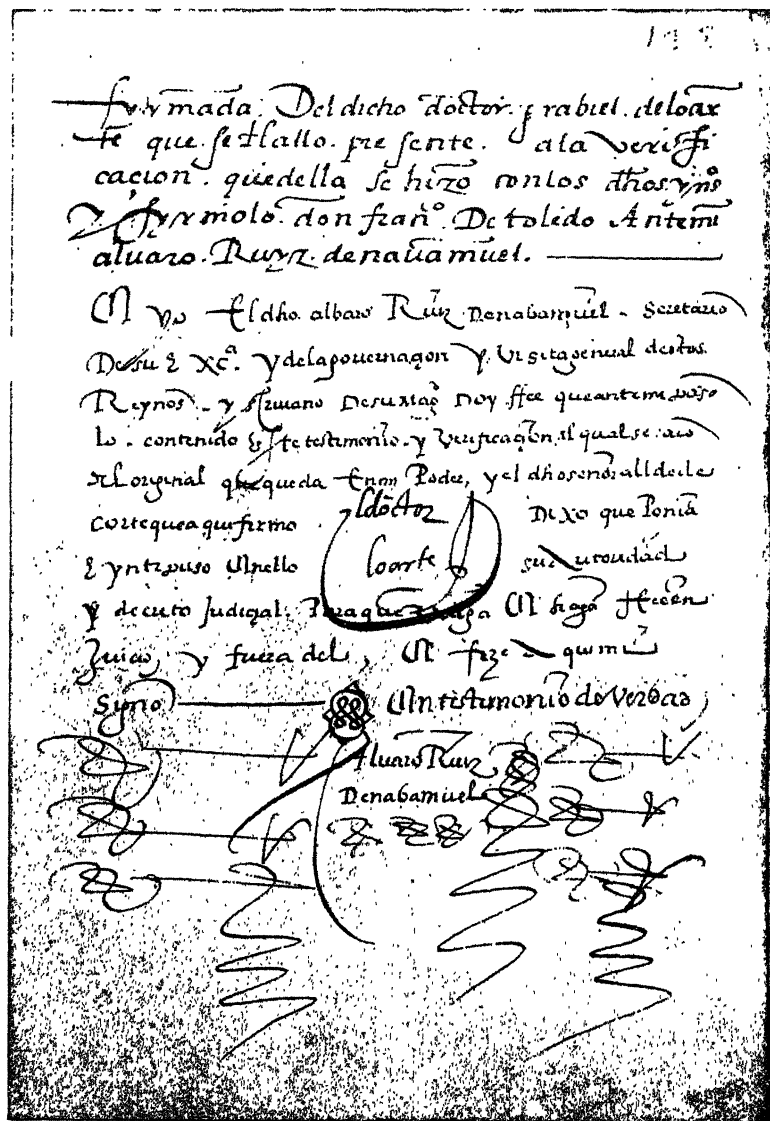 fyrmada. Del dicho doctor. grabiel. de loar
te que. se hallo. presente. a la verifi
cacion. que della se hizo con los dhos yns
y fyrmolo. don franco. De toledo Ante mi
alvaro. Ruyz. de navamuel.
En yo El dho. albaro Ruiz Denabamuel. Secretario
De su Exca. y de la governaçon y Visita general destos
Reynos. y scrivano De su mag Doy ffee que ante mi paso
lo. contenido En Este testimonio. y Verificaçon, el qual se saco
del original que queda En mi Poder, y el dho señor alld de
corte que aqui firmo El doctor Dixo que Ponia
E ynterpuso En ello loarte su autoridad
y decreto Judicial. Para que valga En haga ffee en
Juicio, y fuera del, En fize aqui mi
Syno En testimonio de Verdad
Alvaro Ruiz
Denabamuel